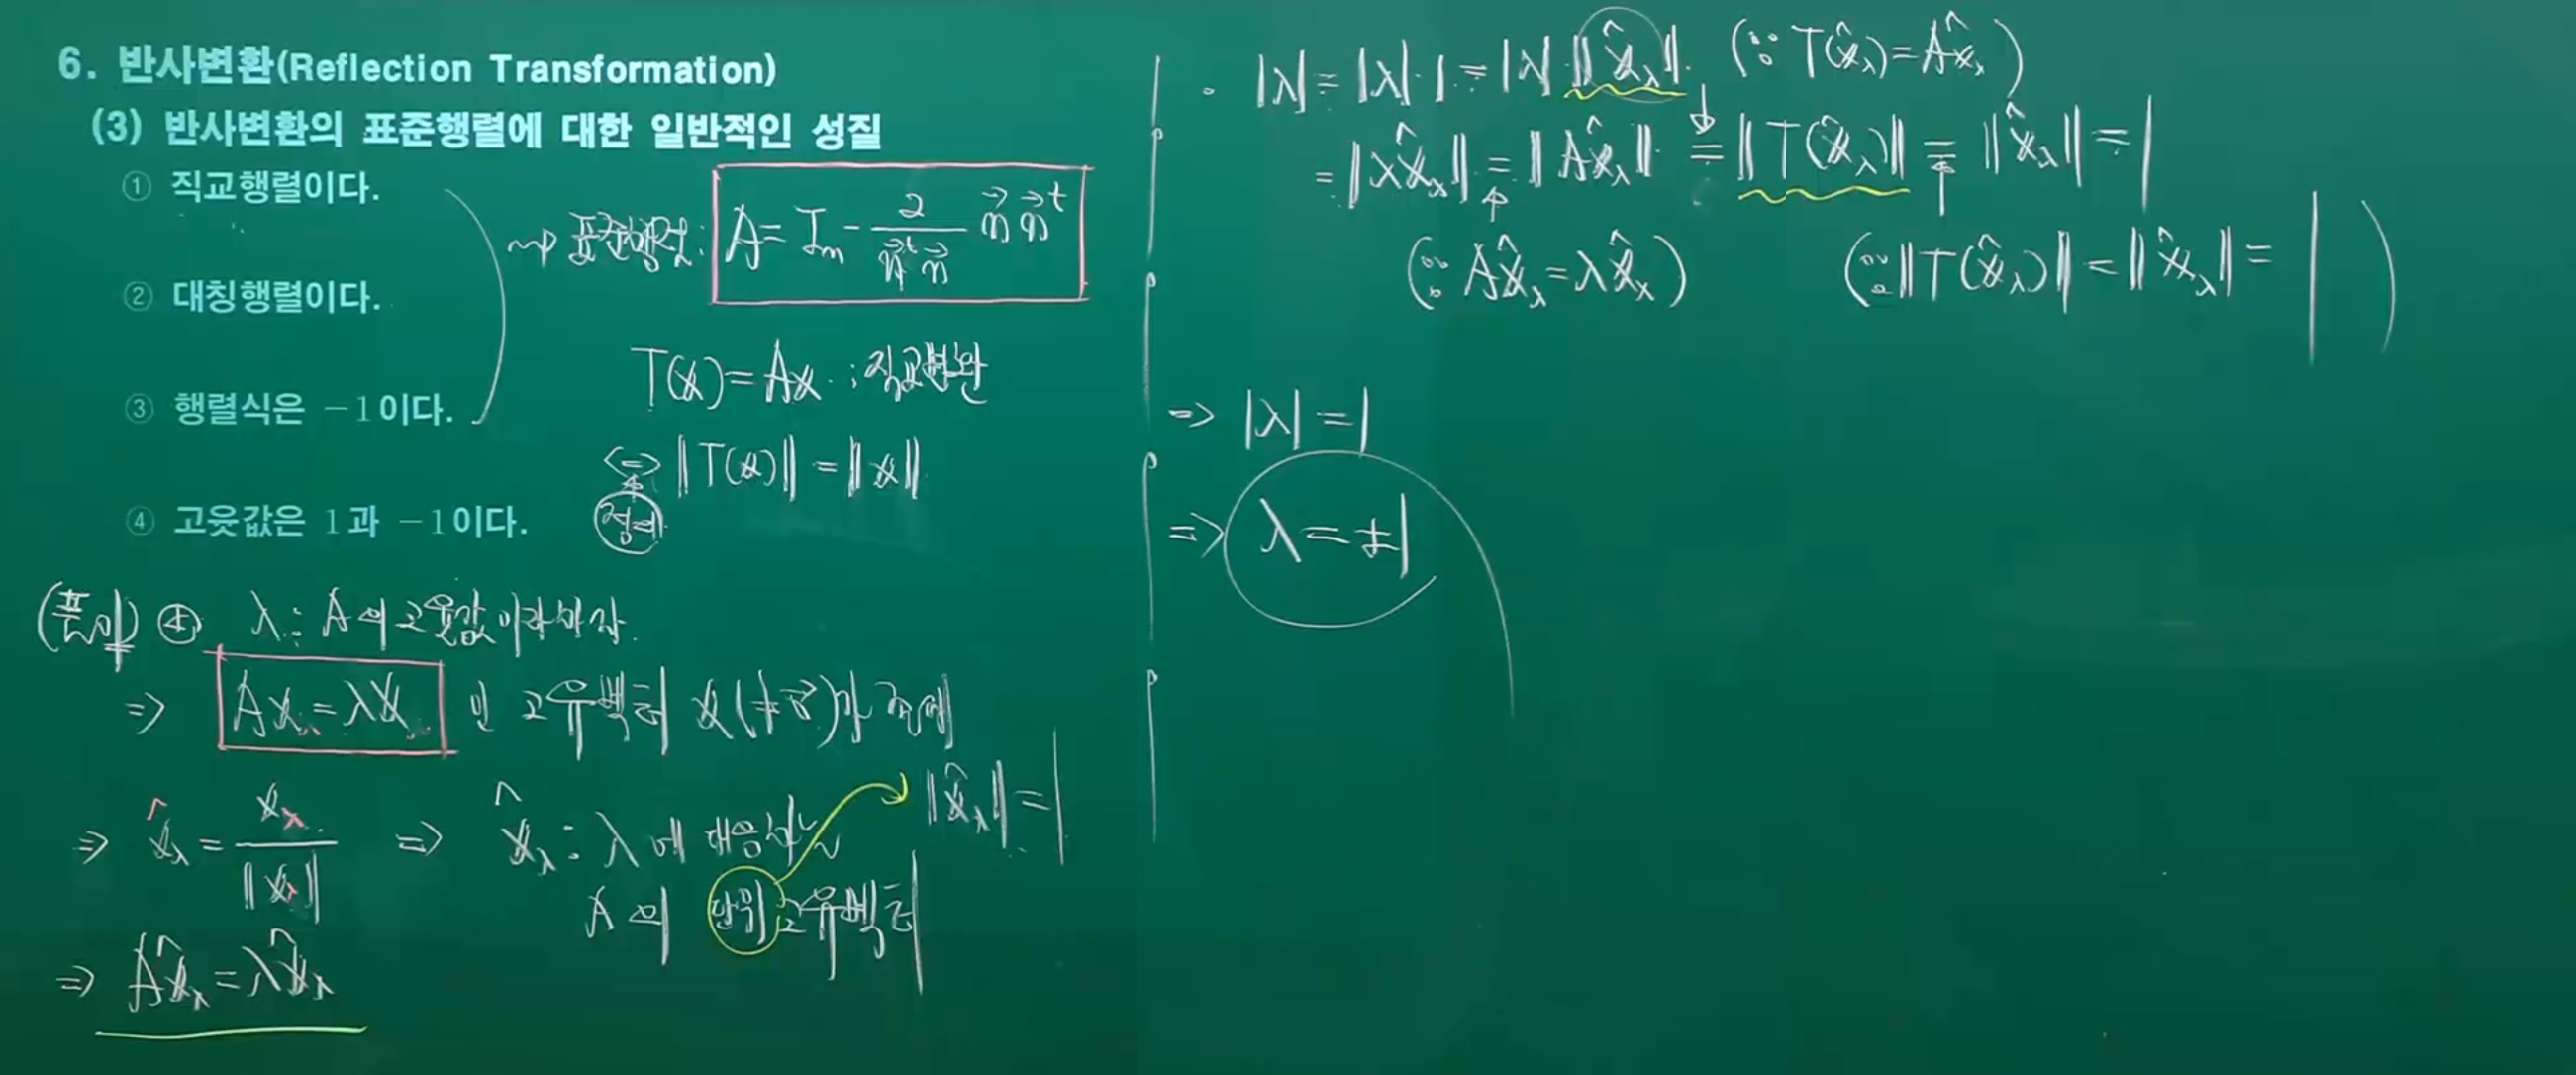 6. 반사변환(Reflection Transformation)
(3) 반사변환의 표준행렬에 대한 일반적인 성질
① 직교행렬이다.
② 대칭행렬이다.
③ 행렬식은 -1이다.
④ 고윳값은 1과 -1이다.
⇝ 표준행렬: A = Iₙ - 2/(n⃗ᵗ n⃗) n⃗ n⃗ᵗ
T(x) = Ax : 직교변환
⇔ ‖T(x)‖ = ‖x‖
정의
(풀이) ④ λ : A의 고윳값이라 하자.
⇒ Ax_λ = λx_λ 인 고유벡터 x(≠0⃗)가 존재
⇒ x̂_λ = x_λ/‖x_λ‖ ⇒ x̂_λ : λ에 대응하는
A의 단위고유벡터
‖x̂_λ‖ = 1
⇒ Ax̂_λ = λx̂_λ
· |λ| = |λ|·1 = |λ|·‖x̂_λ‖ (∵ T(x̂_λ) = Ax̂_λ)
= ‖λx̂_λ‖ = ‖Ax̂_λ‖ = ‖T(x̂_λ)‖ = ‖x̂_λ‖ = 1
(∵ Ax̂_λ = λx̂_λ) (∵ ‖T(x̂_λ)‖ = ‖x̂_λ‖ = 1)
⇒ |λ| = 1
⇒ λ = ±1